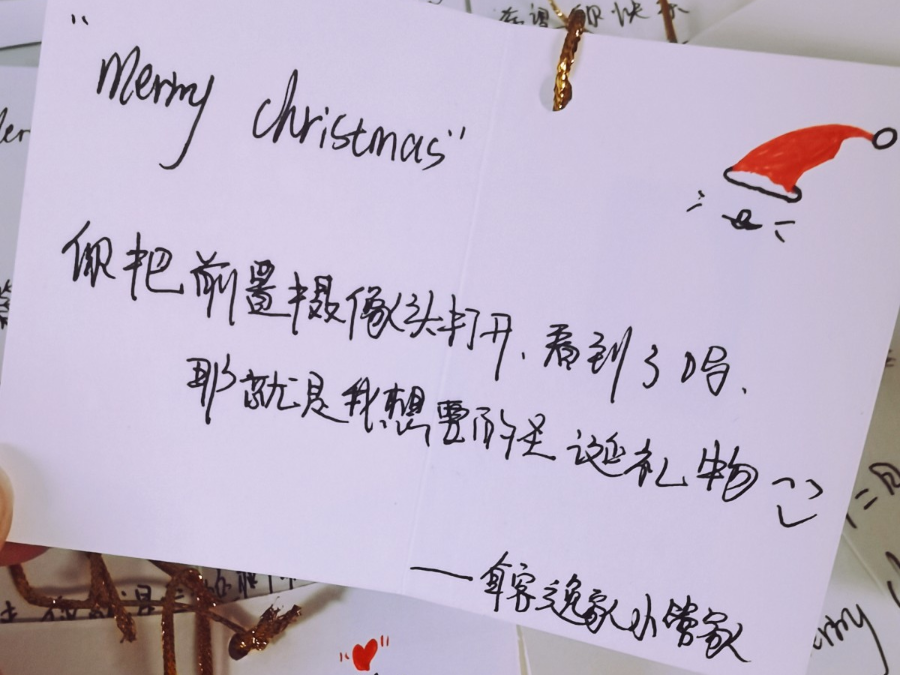 希望你快乐
"Merry christmas"
你把前置摄像头打开、看到了吗、
那就是我想要的圣诞礼物
小管家